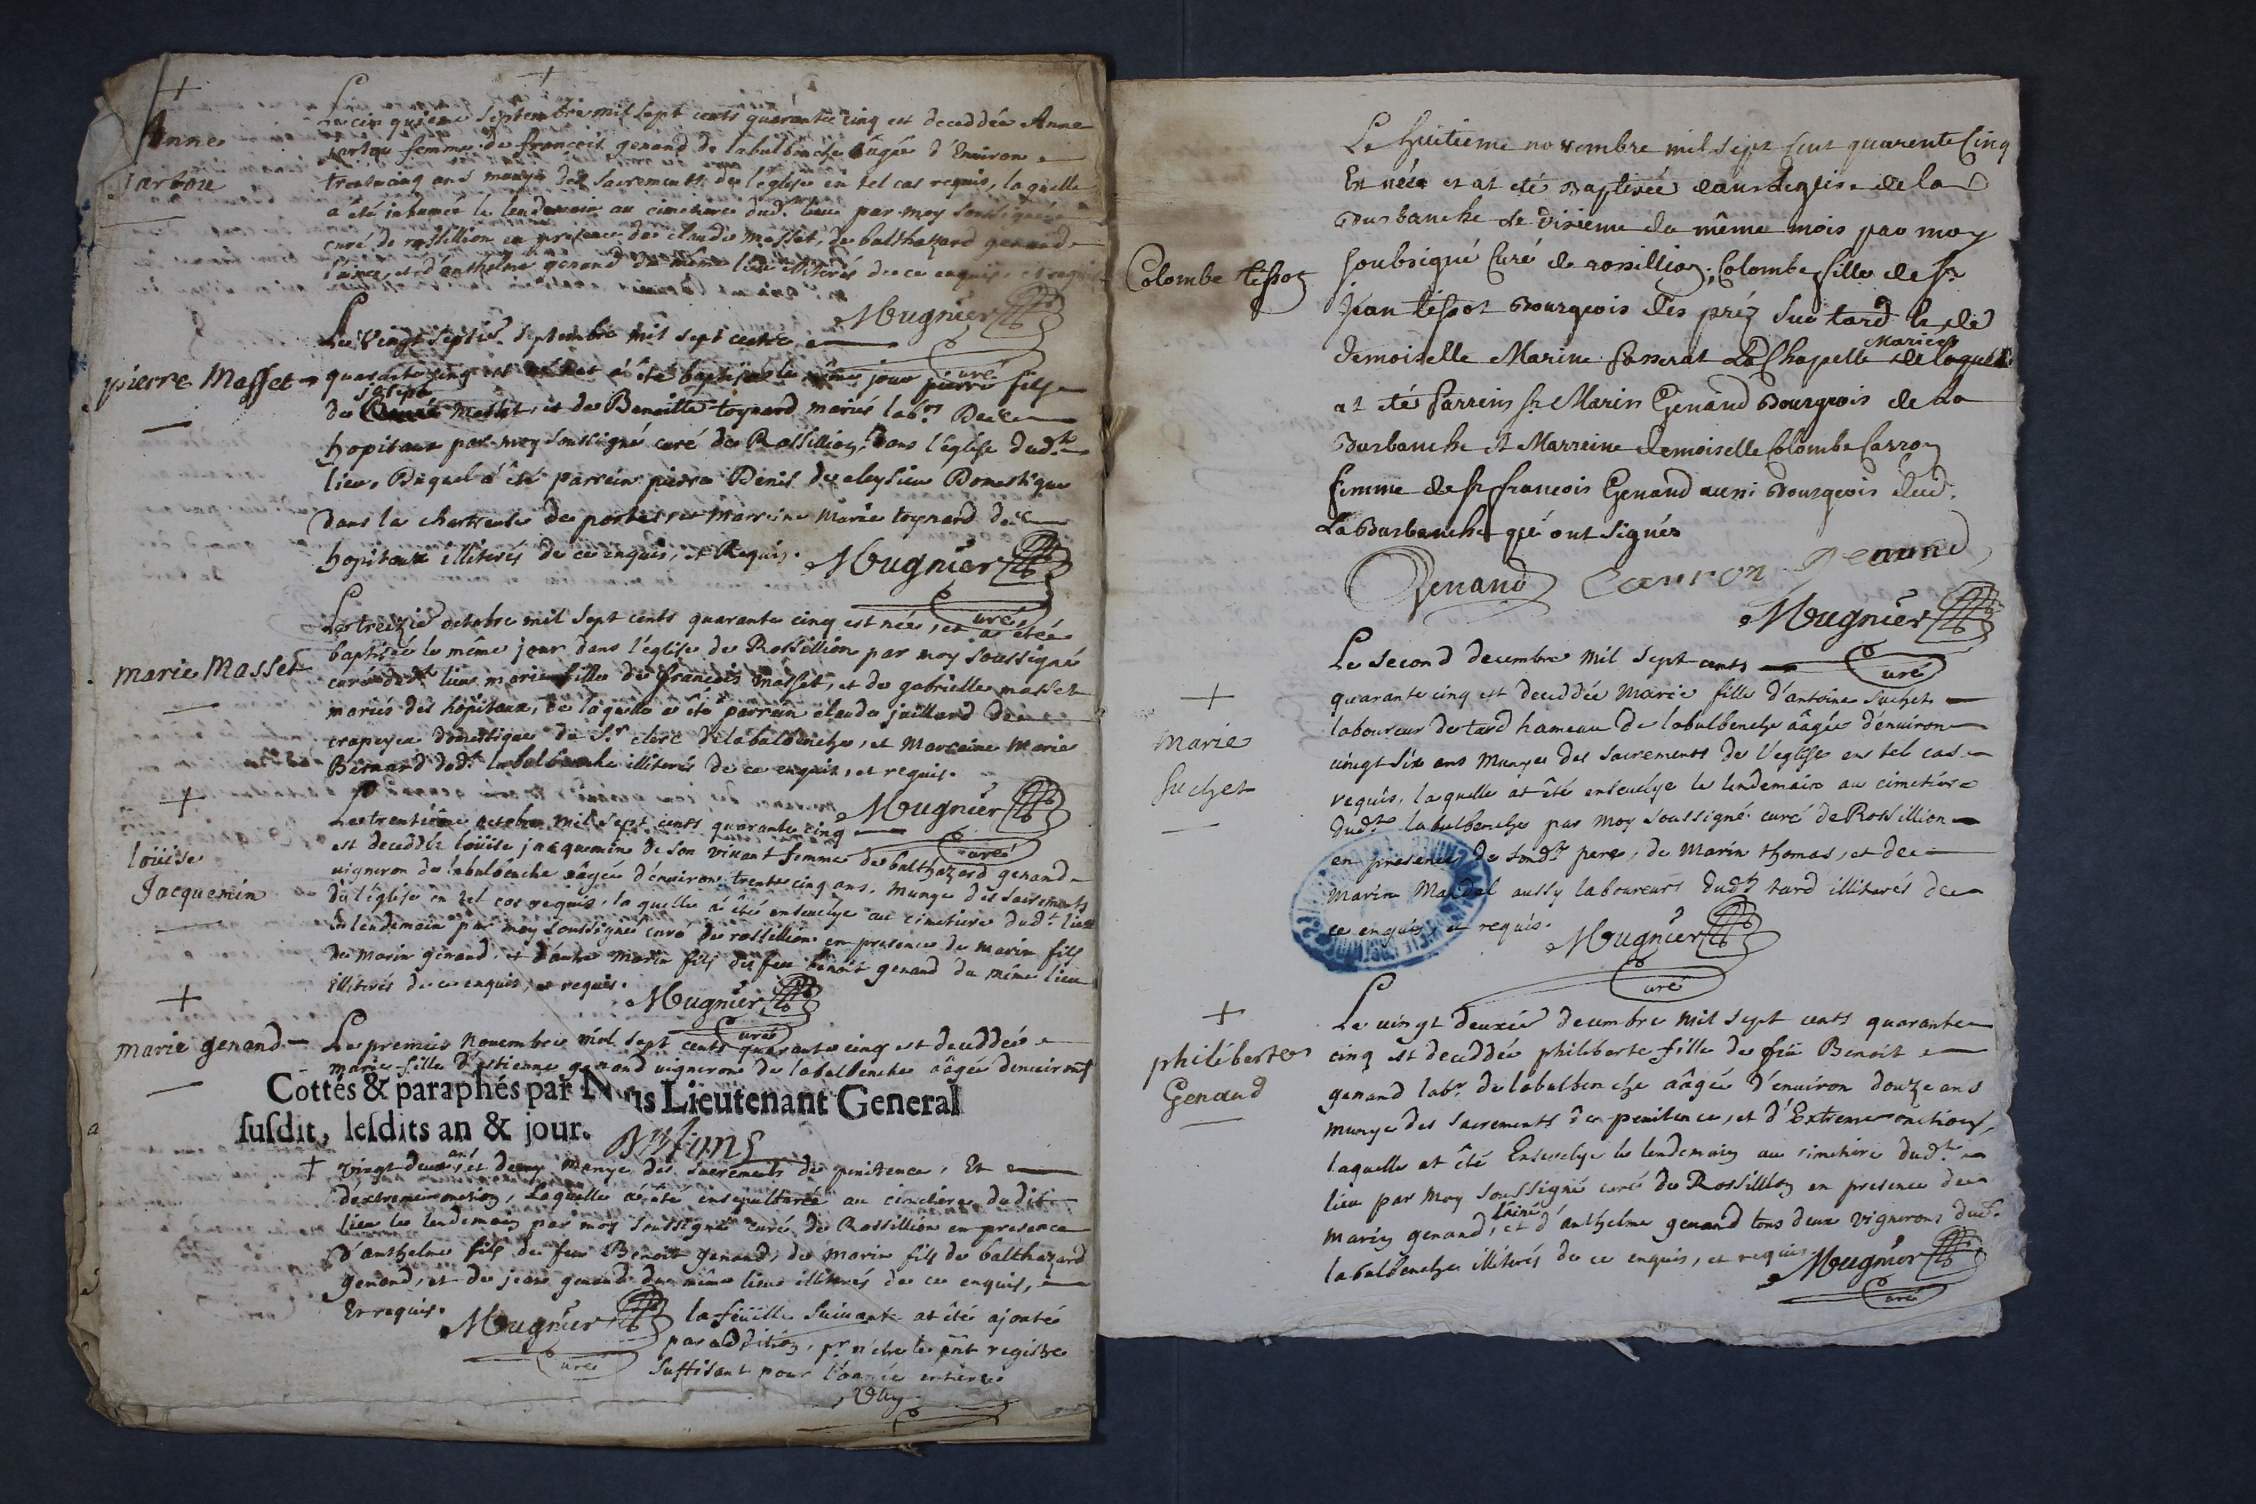 Anne
Jarbou
Le cinquieme septembre mil sept cents quarante cinq est deceddée Anne
jarbou femme de francois genand de labulbenche âagée d'environ
trente cinq ans munye des sacrements de l'eglise en tel cas requis, laquelle
a été inhumée le lendemain au cimetiere dud.t lieu par moy soussigné
curé de rossillion en presence de claude masset, de balthazard genand
l'ainé, et d'anthelme genand du même lieu illiterés de ce enquis et requis
Mugnier
curé
pierre Masset
Le vingt septie. septembre mil sept cents
quarante cinq est né et a été baptisé le même jour pierre fils
de joseph Masset, et de Benoitte toynard mariés lab.rs Des
hopitaux par moy soussigné curé de Rossillion, dans l'église dud.t
lieu, Duquel a été parrein pierre Denis de cleysieu Domestique
Dans la chartreuse de portes et marreine Marie toynard des
hopitaux illiterés de ce enquis, et Requis. Mugnier
curé
marie Masset
Le treizie octobre mil sept cents quarante cinq est née, et at étée
baptisée le même jour dans l'église de Rossillion par moy soussigné
curé dud.t lieu marie fille de francois masset, et de gabrielle masset
mariés des hôpitaux, de laquelle a été parrein claude juillard de
crapeyea domestique de S.r clerc de labulbenche, et Marreine Marie
Bernard dud.t labulbenche illiterés de ce enquis, et requis.
Mugnier
curé
loüise
Jacquemin
Le trentiéme octobre mil sept cents quarante cinq
est deceddée loüise jacquemin de son vivant femme de balthazard genand
vigneron de labulbenche âagée d'environ trente cinq ans. munye des sacrements
de l'église en tel cas requis, laquelle a été ensevelye au cimetiere dud.t lieu
le lendemain par moy soussigné curé de rossillion en presence de marin fils
de marin genand, et d'autre marin fils de feu benoit genand du même lieu
illiterés de ce enquis, et requis. Mugnier
curé
marie genand
Le premier novembre mil sept cents quarante cinq est deceddée
marie fille d'estienne genand vigneron de labulbenche âagée denviron
Cottés & paraphés par Nous Lieutenant General
susdit, lesdits an & jour.
vingt deux ans et demy munye des sacrements de penitence, Et
dextreme onction, Laquelle a été ensepulturée au cimetiere dudit
lieu le lendemain par moy soussigné curé de Rossillion en presence
d'anthelme fils de feu Benoit genand, de marin fils de balthazard
genand, et de jean genand du même lieu illiterés de ce enquis,
Et requis. Mugnier
curé
la feuille suivante at été ajoutée
par addition, p.r n'etre le p̃nt registre
suffisant pour l'année entiere
Colombe tissot
Le huitieme novembre mil sept cent quarente Cinq
Est née et at eté Baptisée dans l'eglise de la
Burbanche le dixieme du même mois par moy
soubsigné Curé de rossillion, Colombe fille de sr
Jean tissot Bourgeois des préz sur tard & de
demoiselle Marine fasserat La Chapelle Mariés de laquelle
at eté Parrein sr Marin Genand Bourgeois de La
Burbanche & Marreine demoiselle Colombe Carron
femme de sr francois Genand aussi Bourgeois dud.
La Burbanche qui ont signés
Genand Carron Genand
Mugnier
curé
marie
Suchet
Le second decembre mil sept cents
quarante cinq est deceddée marie fille d'antoine Suchet
laboureur de tard hameau de labulbenche âagée d'environ
vingt six ans munye des sacrements de l'eglise en tel cas
requis, laquelle at été ensevelye le lendemain au cimetiere
dud.t labulbenche par moy soussigné curé de Rossillion
en presence de sond.t pere, de Marin thomas, et de
marin Mardal aussy laboureurs dud.t tard illiterés de
ce enquis et requis. Mugnier
curé
philiberte
Genand
Le vingt deuxie decembre mil sept cents quarante
cinq est deceddée philiberte fille de feu Benoit
genand lab.r de labulbenche âagée d'environ douze ans
munye des sacrements de penitence, et d'Extreme onction,
laquelle at été Ensevelye le lendemain au cimetiere dud.t
lieu par moy soussigné curé de Rossillion en presence de
marin genand, l'ainé, et d'anthelme genand tous deux vignerons dud.t
labulbenche illiterés de ce enquis, et requis. Mugnier
curé